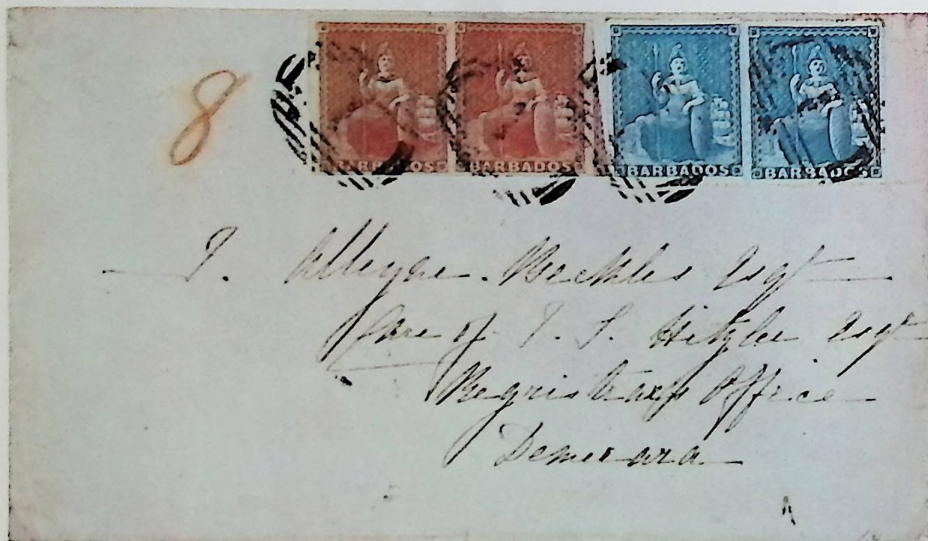 BARBADOS BARBADOS BARBADOS BARBADOS
8
Alleyne Beckles Esqr
Care of T. S. Esqr
Registrars Office
Demerara